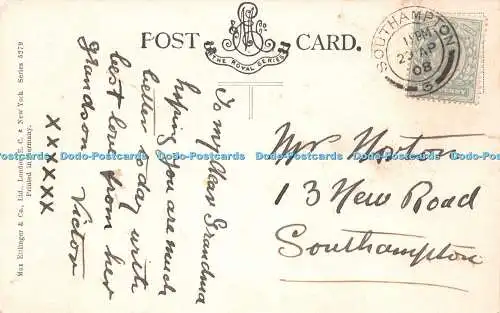 POST CARD.
THE ROYAL SERIES
SOUTHAMPTON
11 PM
23 AP
08
6
Max Ettlinger & Co., Ltd., London, E. C. & New York. Series 5279
Printed in Germany.
To my dear Grandma
hoping you are much
better today with
best love from her
grandson Victor
XXXXXX
Mrs Norton
13 New Road
Southampton
Dodo-Postcards Dodo-Postcards Dodo-Postcards Dodo-Postcards Dodo-Postcards